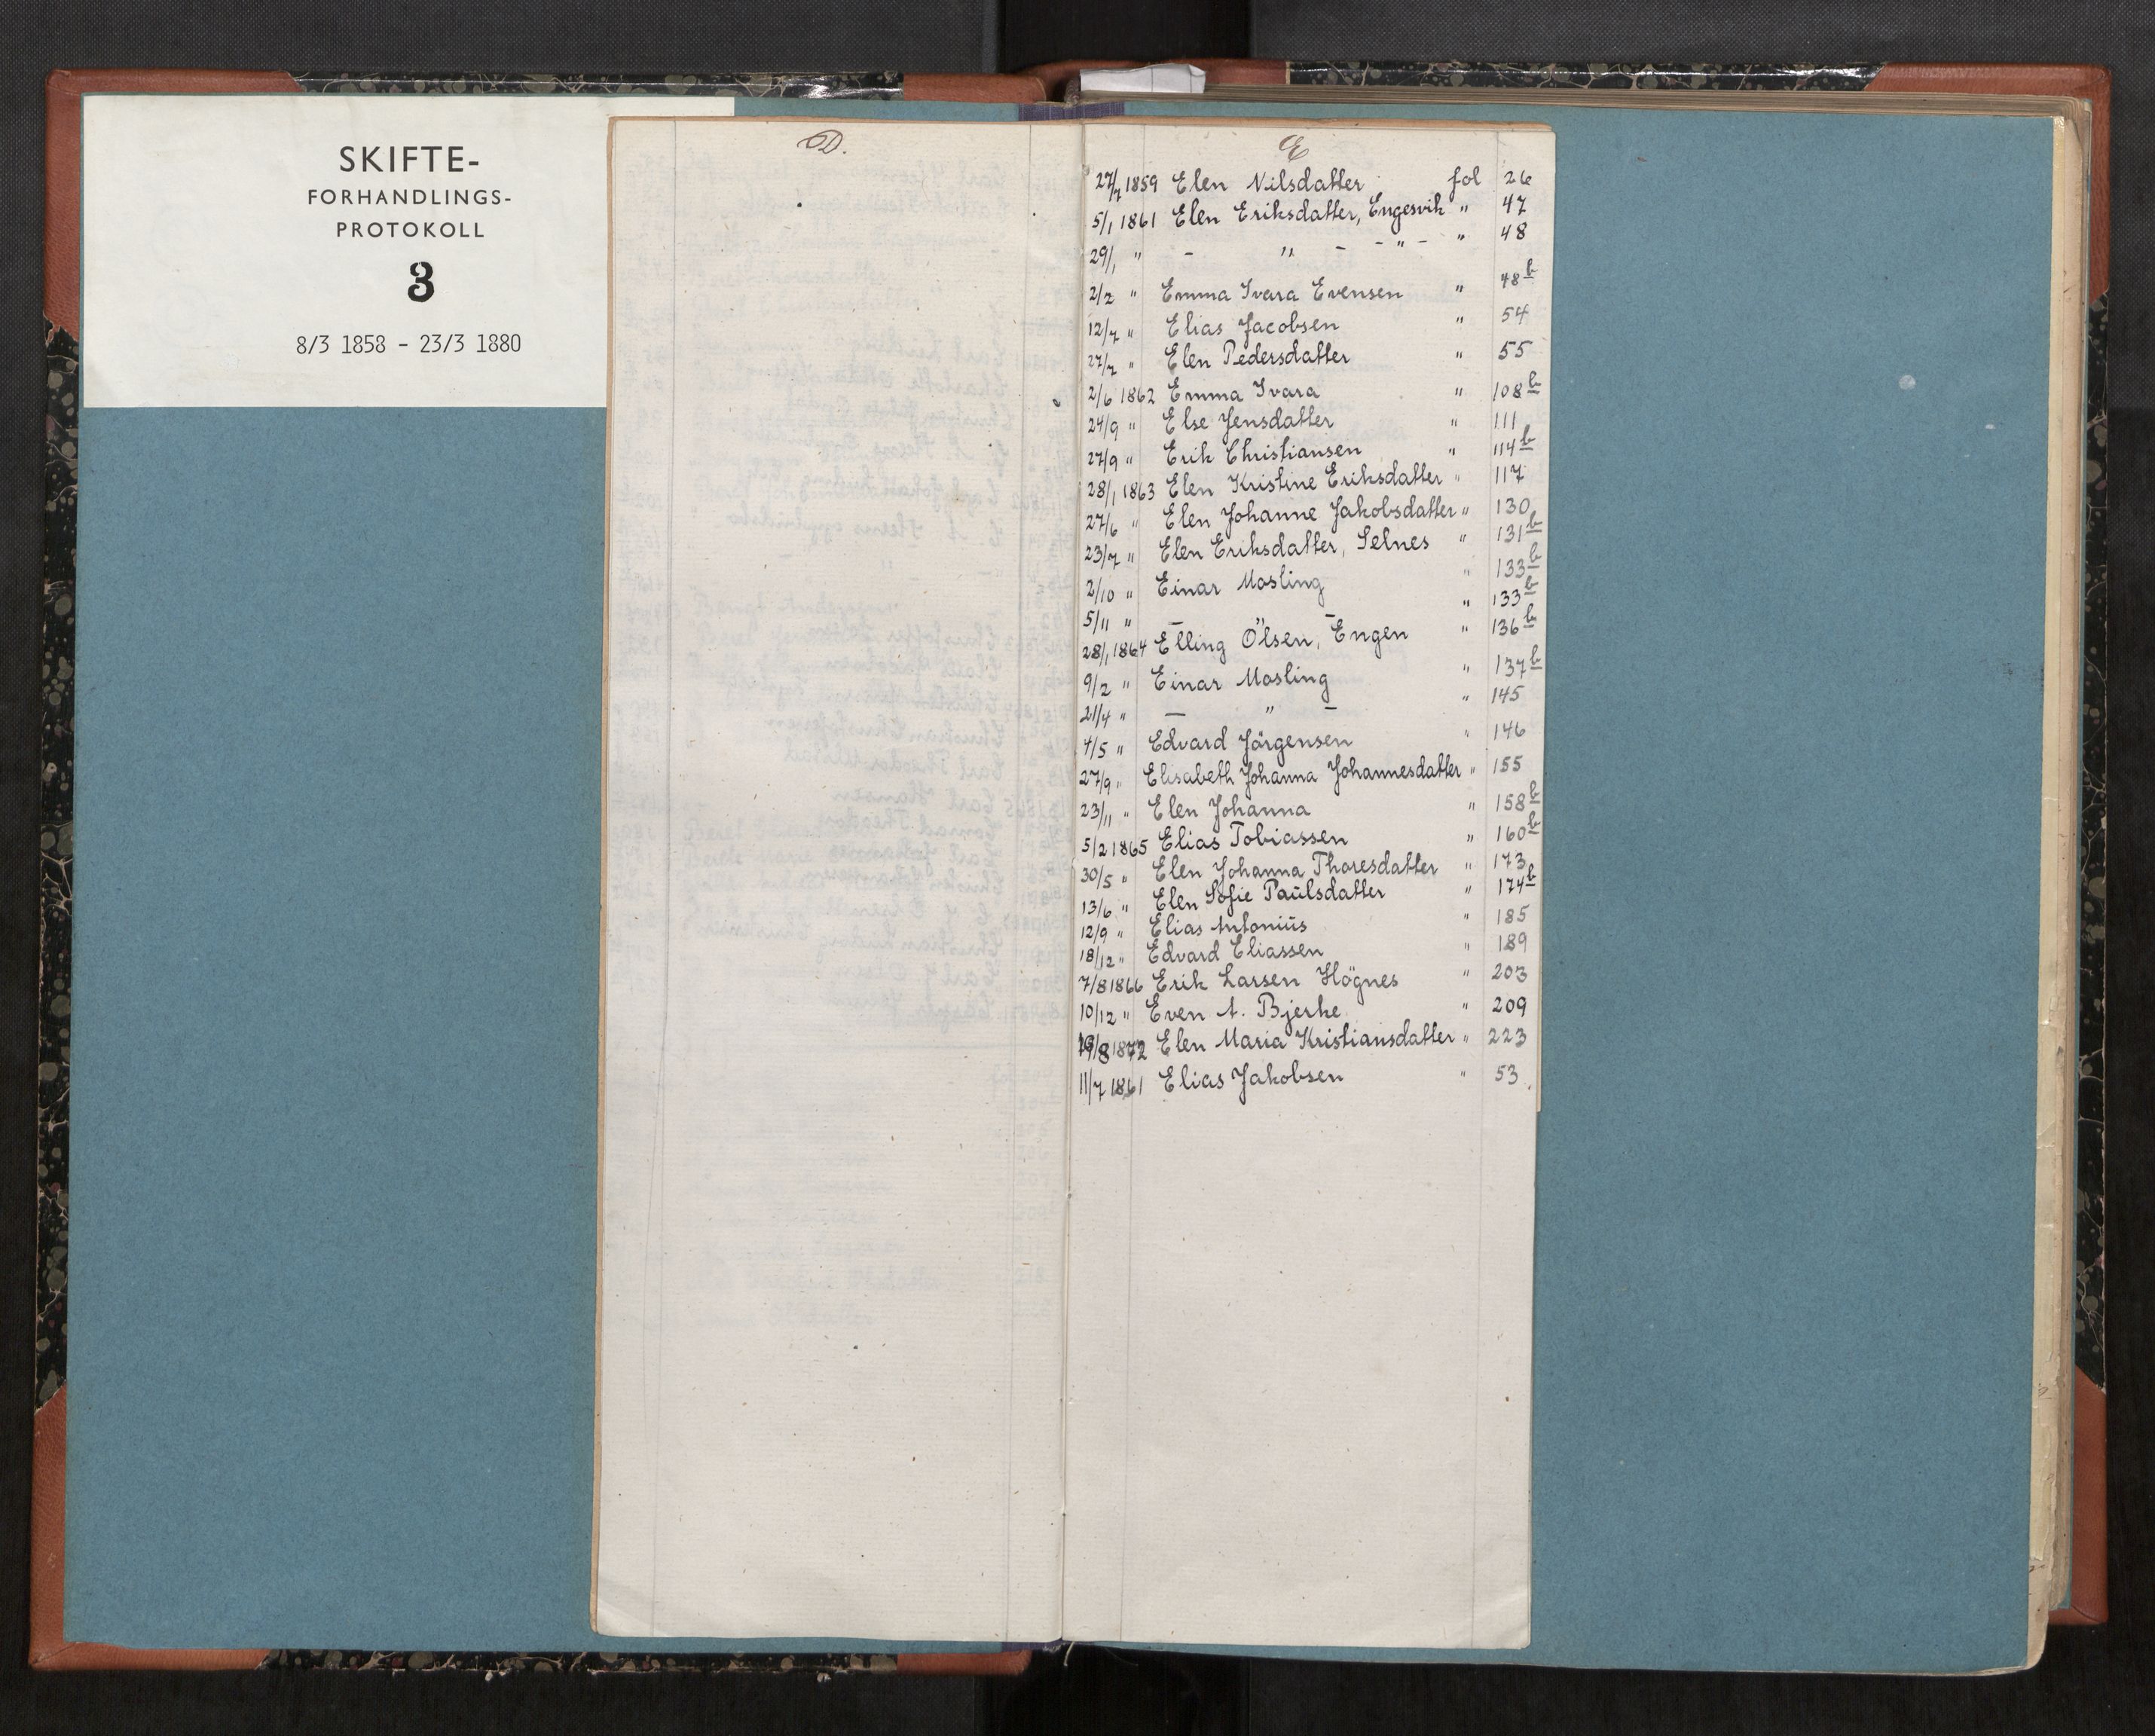 SKIFTE-
FORHANDLINGS-
PROTOKOLL
3
8/3 1858 - 23/3 1880
D.
E
27/7 1859 Elen Nilsdatter fol 26
5/1 1861 Elen Eriksdatter, Engesvik " 47
29/1 " - " - - " - " 48
2/2 " Emma Ivara Evensen " 48b
12/7 " Elias Jacobsen " 54
27/7 " Elen Pedersdatter " 55
2/6 1862 Emma Ivara " 108b
24/9 " Else Jensdatter " 111
27/9 " Erik Christiansen " 114b
28/1 1863 Elen Kristine Eriksdatter " 117
27/6 " Elen Johanne Jakobsdatter " 130
23/7 " Elen Eriksdatter, Selnes " 131b
2/10 " Einar Mosling " 133b
5/11 " - " - " 133b
28/1 1864 Elling Olsen, Engen " 136b
9/2 " Einar Mosling " 137b
21/4 " - " - " 145
4/5 " Edvard Jörgensen " 146
27/9 " Elisabeth Johanna Johannesdatter " 155
23/11 " Elen Johanna " 158b
5/2 1865 Elias Tobiassen " 160b
30/5 " Elen Johanna Thoresdatter " 173
13/6 " Elen Sofie Paulsdatter " 174b
12/9 " Elias Antonius " 185
18/12 " Edvard Eliassen " 189
7/8 1866 Erik Larsen Högnes " 203
10/12 " Even A. Bjerke " 209
1872 Elen Maria Kristiansdatter " 223
11/7 1861 Elias Jakobsen " 53